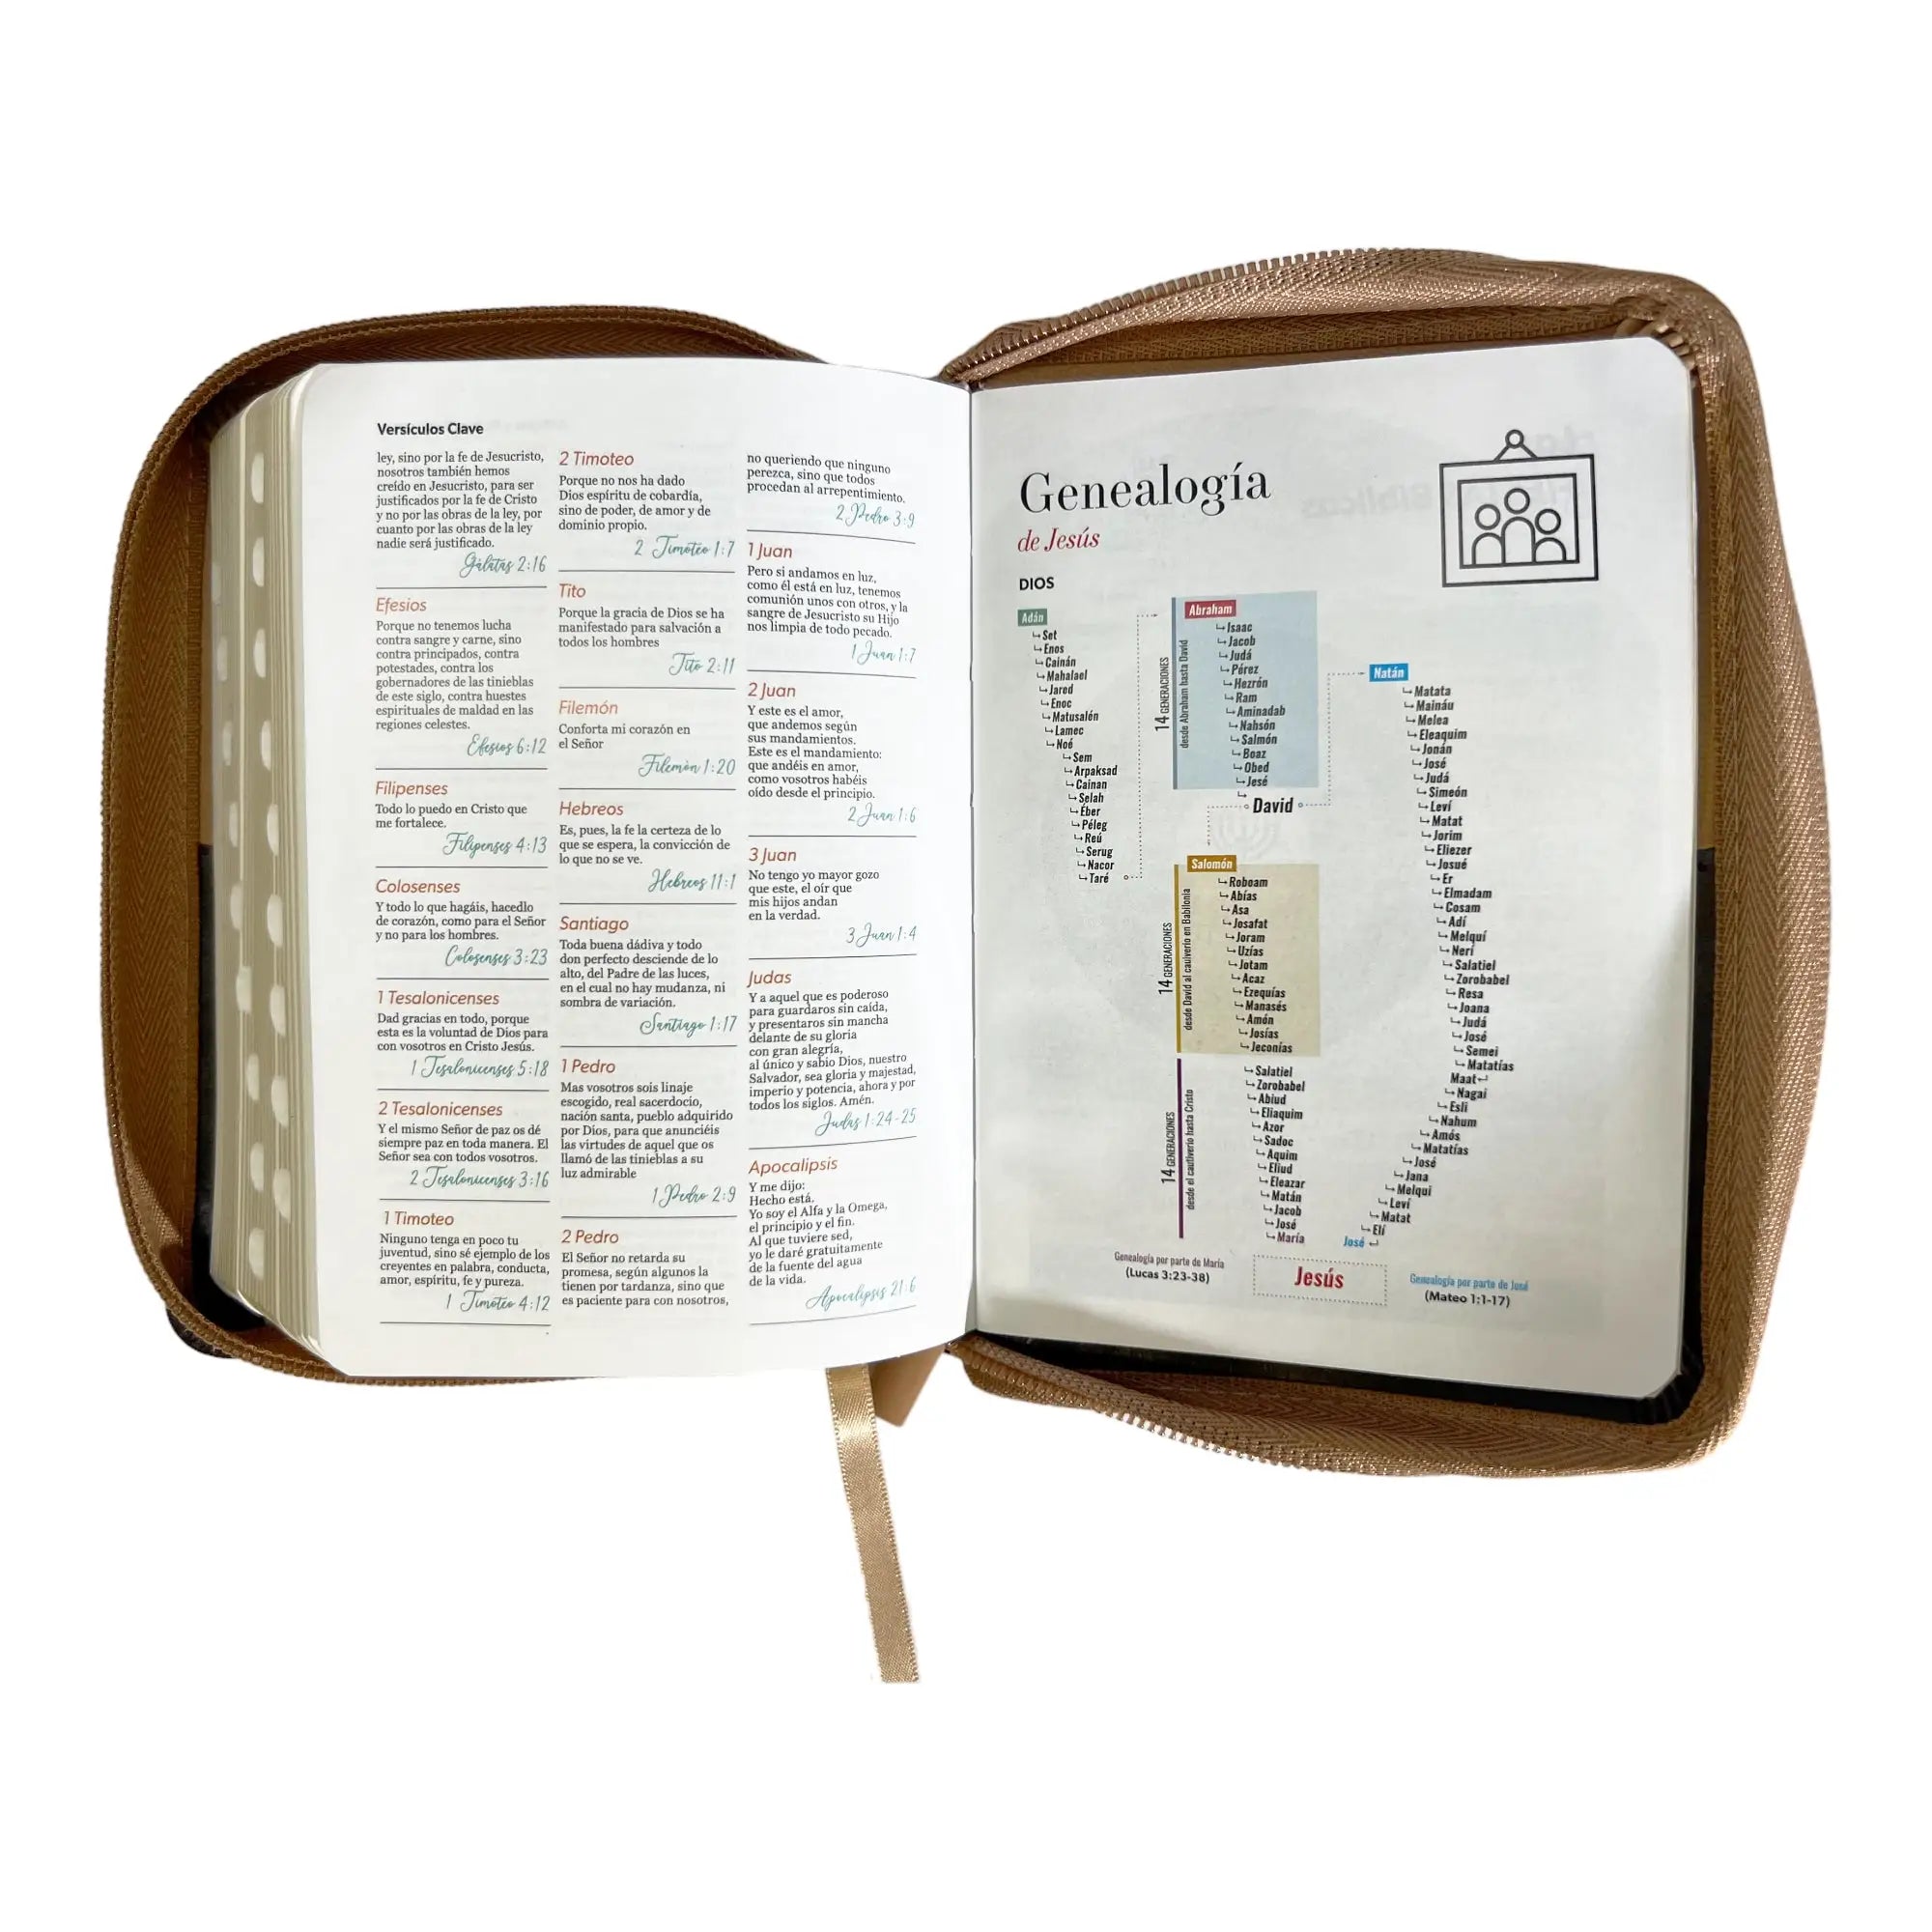 Versículos Clave
ley, sino por la fe de Jesucristo,
nosotros también hemos
creído en Jesucristo, para ser
justificados por la fe de Cristo
y no por las obras de la ley, por
cuanto por las obras de la ley
nadie será justificado.
Gálatas 2:16
Efesios
Porque no tenemos lucha
contra sangre y carne, sino
contra principados, contra
potestades, contra los
gobernadores de las tinieblas
de este siglo, contra huestes
espirituales de maldad en las
regiones celestes.
Efesios 6:12
Filipenses
Todo lo puedo en Cristo que
me fortalece.
Filipenses 4:13
Colosenses
Y todo lo que hagáis, hacedlo
de corazón, como para el Señor
y no para los hombres.
Colosenses 3:23
1 Tesalonicenses
Dad gracias en todo, porque
esta es la voluntad de Dios para
con vosotros en Cristo Jesús.
1 Tesalonicenses 5:18
2 Tesalonicenses
Y el mismo Señor de paz os dé
siempre paz en toda manera. El
Señor sea con todos vosotros.
2 Tesalonicenses 3:16
1 Timoteo
Ninguno tenga en poco tu
juventud, sino sé ejemplo de los
creyentes en palabra, conducta,
amor, espíritu, fe y pureza.
1 Timoteo 4:12
2 Timoteo
Porque no nos ha dado
Dios espíritu de cobardía,
sino de poder, de amor y de
dominio propio.
2 Timoteo 1:7
Tito
Porque la gracia de Dios se ha
manifestado para salvación a
todos los hombres
Tito 2:11
Filemón
Conforta mi corazón en
el Señor
Filemón 1:20
Hebreos
Es, pues, la fe la certeza de lo
que se espera, la convicción de
lo que no se ve.
Hebreos 11:1
Santiago
Toda buena dádiva y todo
don perfecto desciende de lo
alto, del Padre de las luces,
en el cual no hay mudanza, ni
sombra de variación.
Santiago 1:17
1 Pedro
Mas vosotros sois linaje
escogido, real sacerdocio,
nación santa, pueblo adquirido
por Dios, para que anunciéis
las virtudes de aquel que os
llamó de las tinieblas a su
luz admirable
1 Pedro 2:9
2 Pedro
El Señor no retarda su
promesa, según algunos la
tienen por tardanza, sino que
es paciente para con nosotros,
no queriendo que ninguno
perezca, sino que todos
procedan al arrepentimiento.
2 Pedro 3:9
1 Juan
Pero si andamos en luz,
como él está en luz, tenemos
comunión unos con otros, y la
sangre de Jesucristo su Hijo
nos limpia de todo pecado.
1 Juan 1:7
2 Juan
Y este es el amor,
que andemos según
sus mandamientos.
Este es el mandamiento:
que andéis en amor,
como vosotros habéis
oído desde el principio.
2 Juan 1:6
3 Juan
No tengo yo mayor gozo
que este, el oír que
mis hijos andan
en la verdad.
3 Juan 1:4
Judas
Y a aquel que es poderoso
para guardaros sin caída,
y presentaros sin mancha
delante de su gloria
con gran alegría,
al único y sabio Dios, nuestro
Salvador, sea gloria y majestad,
imperio y potencia, ahora y por
todos los siglos. Amén.
Judas 1:24-25
Apocalipsis
Y me dijo:
Hecho está.
Yo soy el Alfa y la Omega,
el principio y el fin.
Al que tuviere sed,
yo le daré gratuitamente
de la fuente del agua
de la vida.
Apocalipsis 21:6
Genealogía
de Jesús
DIOS
Adán
Set
Enos
Cainán
Mahalael
Jared
Enoc
Matusalén
Lamec
Noé
Sem
Arpaksad
Cainan
Selah
Éber
Péleg
Reú
Serug
Nacor
Taré
14 GENERACIONES
desde Abraham hasta David
Abraham
Isaac
Jacob
Judá
Pérez
Hezrón
Ram
Aminadab
Nahsón
Salmón
Boaz
Obed
Jesé
David
14 GENERACIONES
desde David al cautiverio en Babilonia
Salomón
Roboam
Abías
Asa
Josafat
Joram
Uzías
Jotam
Acaz
Ezequías
Manasés
Amón
Josías
Jeconías
14 GENERACIONES
desde el cautiverio hasta Cristo
Salatiel
Zorobabel
Abiud
Eliaquim
Azor
Sadoc
Aquim
Eliud
Eleazar
Matán
Jacob
José
María
Natán
Matata
Mainäu
Melea
Eleaquim
Jonán
José
Judá
Simeón
Leví
Matat
Jorim
Eliezer
Josué
Er
Elmadam
Cosam
Adí
Melquí
Neri
Salatiel
Zorobabel
Resa
Joana
Judá
José
Semei
Matatías
Maat
Nagai
Esli
Nahum
Amós
Matatías
José
Jana
Melqui
Leví
Matat
Elí
José
Genealogía por parte de María
(Lucas 3:23-38)
Jesús
Genealogía por parte de José
(Mateo 1:1-17)